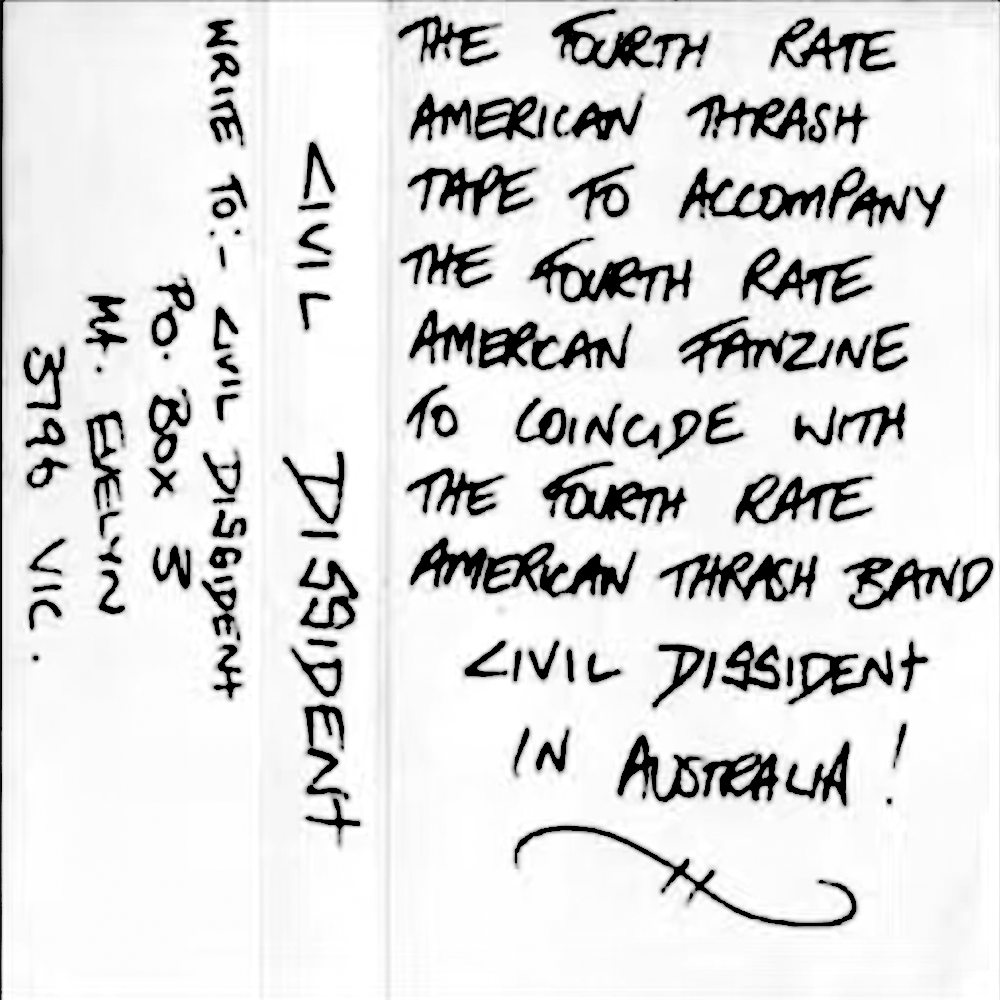 THE FOURTH RATE
AMERICAN THRASH
TAPE TO ACCOMPANY
THE FOURTH RATE
AMERICAN FANZINE
TO COINCIDE WITH
THE FOURTH RATE
AMERICAN THRASH BAND
CIVIL DISSIDENT
IN AUSTRALIA!
CIVIL DISSIDENT
WRITE TO:- CIVIL DISSIDENT
PO. BOX 3
Mt. EVELYN
3796 VIC.